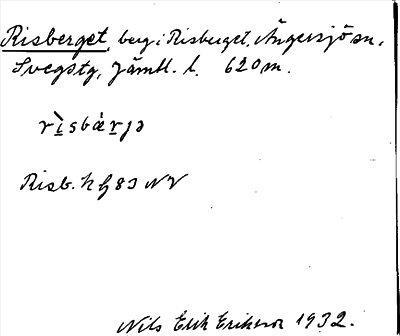 Risberget, berg i Risberget, Ängersjö sn,
Svegs tg, Jämtl. l. 620 m.
rìsbárjə
Risb. h f 83 NV
Nils Erik Erikson 1932.